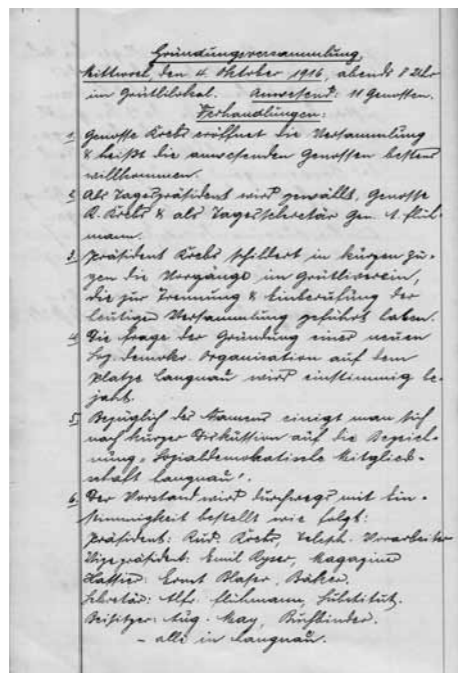 Gründungsversammlung,
Mittwoch, den 4. Oktober 1916, abends 8 Uhr
im Grütlilokal. Anwesend: 11 Genossen.
Verhandlungen:
1. Genosse Krebs eröffnet die Versammlung
& heißt die anwesenden Genossen bestens
willkommen.
2. Als Tagespräsident wird gewählt, Genosse
R. Krebs & als Tagessekretär Gen. A. Fleuh-
mann.
3. Präsident Krebs schildert in kurzen Zü-
gen die Vorgänge im Grütliverein,
die zur Trennung & Einberufung der
heutigen Versammlung geführt haben.
4. Die Frage der Gründung einer neuen
Soz. demokr. Organisation auf dem
Platze Langnau wird einstimmig be-
jaht.
5. Bezüglich des Namens einigt man sich
nach kurzer Diskussion auf die Bezeich-
nung „Sozialdemokratische Mitglied-
schaft Langnau".
6. Der Vorstand wird durchwegs mit Ein-
stimmigkeit bestellt wie folgt:
Präsident: Rud. Krebs, Teleph. Vorarbeiter
Vizepräsident: Emil Ryser, Magaziner
Kassier: Ernst Blaser, Bäcker.
Sekretär: Alfr. Fleuhmann, Substitut.
Beisitzer: Aug. May, Buchbinder.
– alle in Langnau.